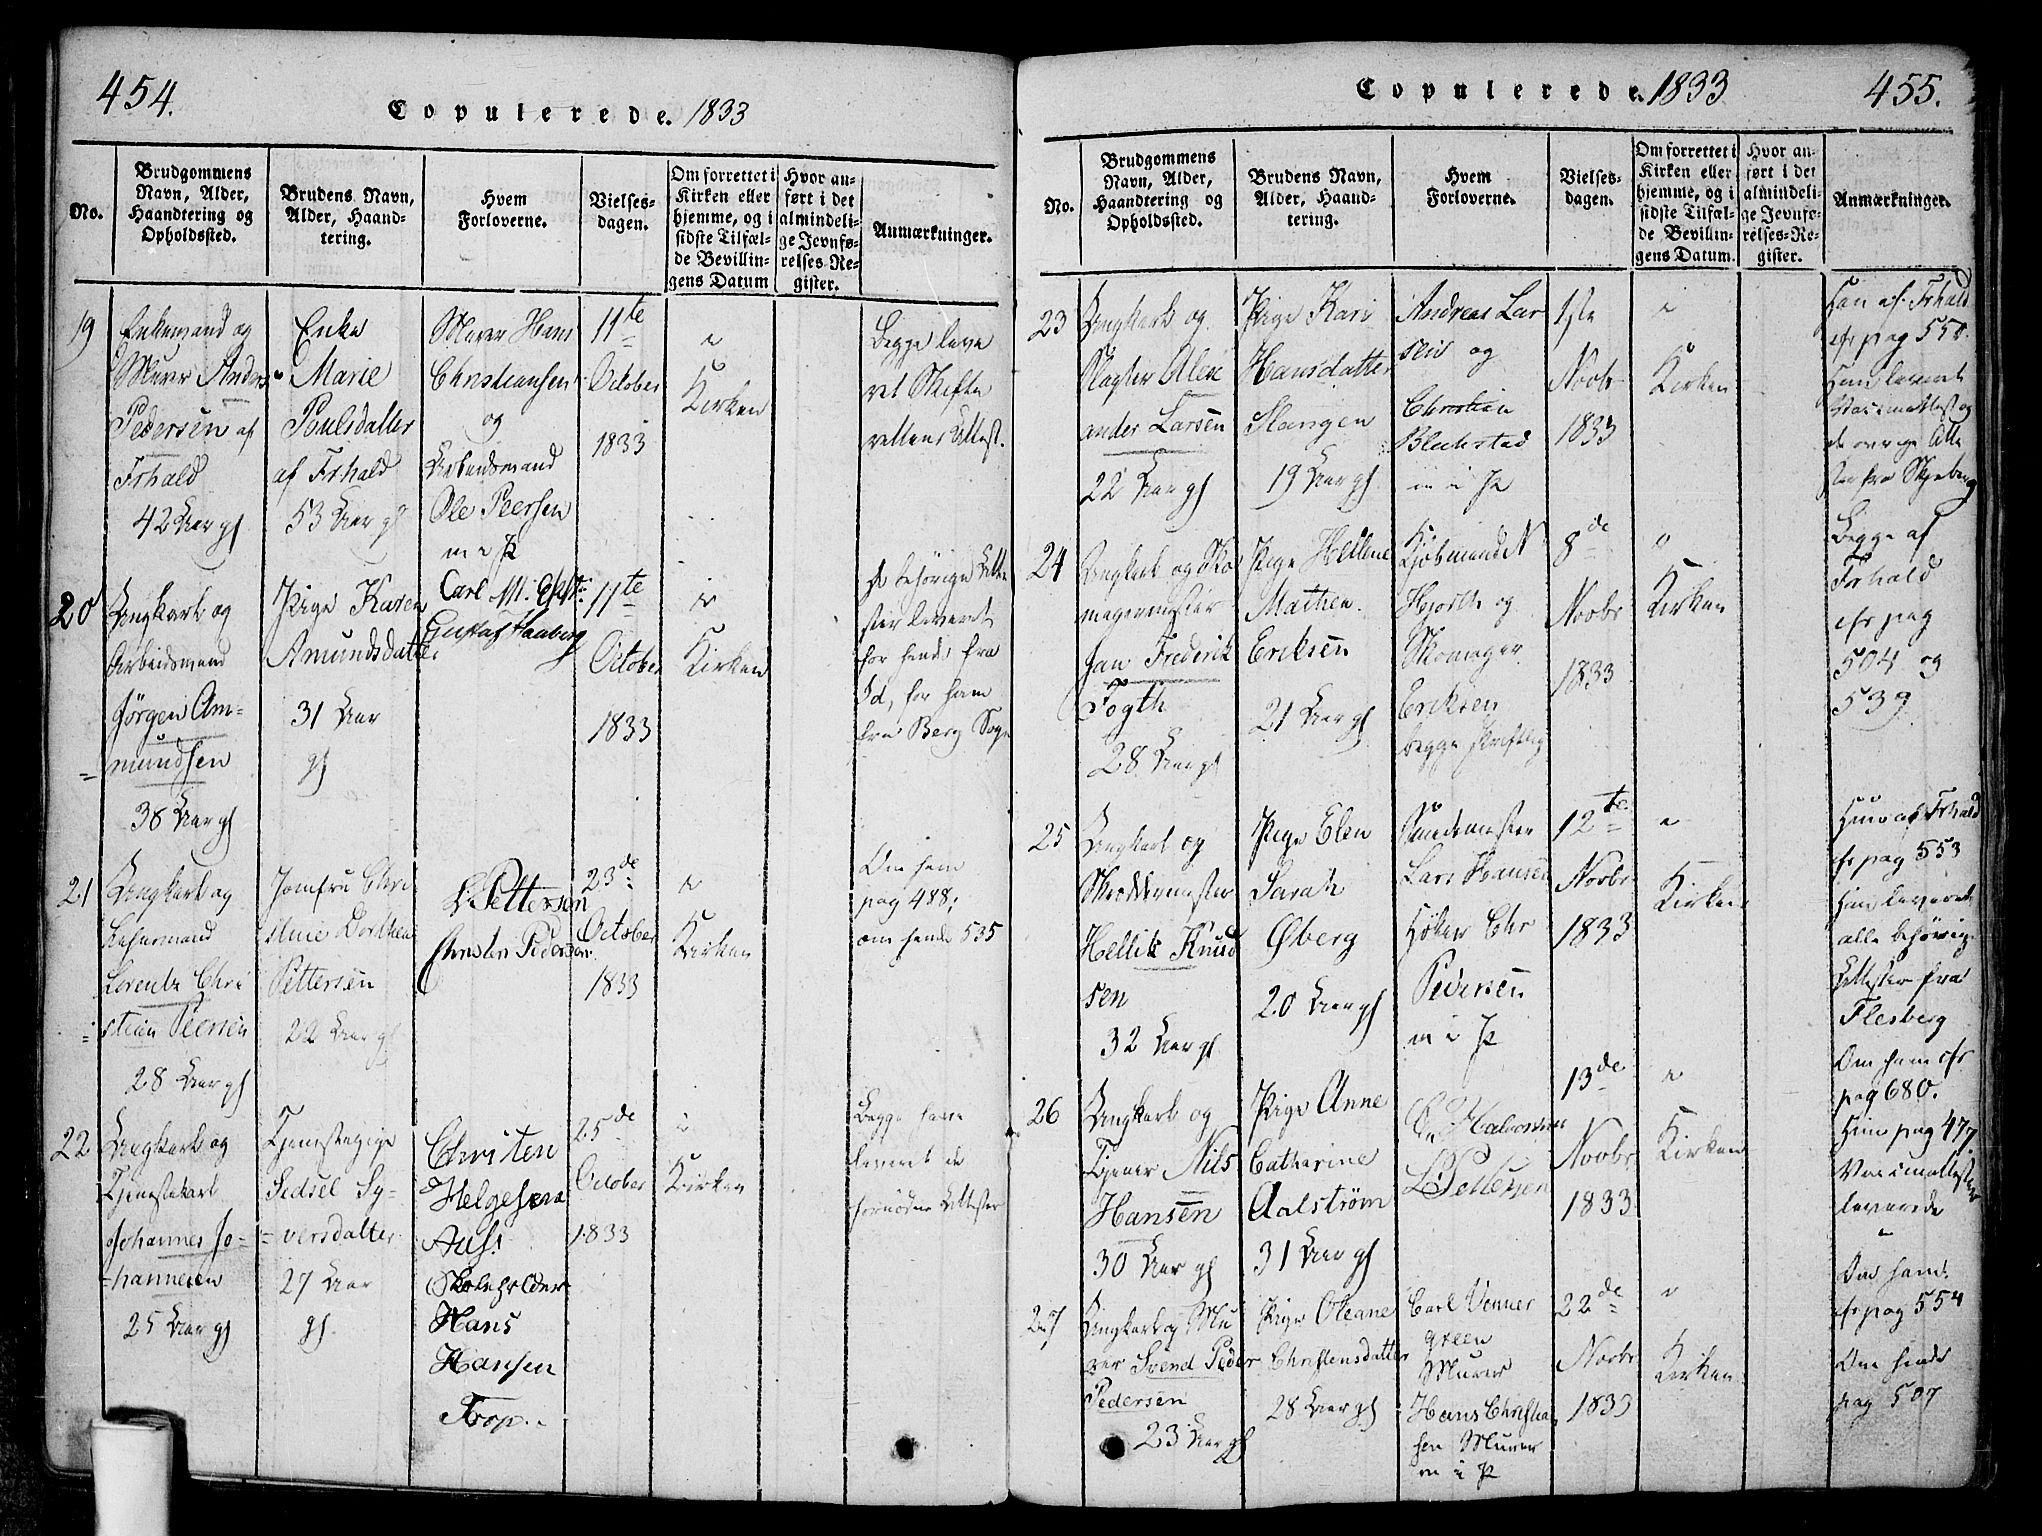 454.
Copulerede. 1833
No.
Brudgommens
Navn, Alder,
Haandtering og
Opholdssted.
Brudens Navn,
Alder, Haand-
tering.
Hvem
Forloverne.
Vielses-
dagen.
Om forrettet i
Kirken eller
hjemme, og i
sidste Tilfæl-
de Bevillin-
gens Datum
Hvor an-
ført i det
almindeli-
ge Jevnfø-
relses-Re-
gister.
Anmærkninger.
19
Enkemand og
Murer Anders
Pedersen af
Frhald
42 Aar gl
Enke
Marie
Poulsdatter
af Frhald
53 Aar gl
Murer Hans
Christiansen
og
Arbeidsmand
Ole Peersen
11te
October
1833
i
Kirken
Begge leve
ret Skifte
rettens Attest.
20
Ungkarl og
Arbeidsmand
Jørgen Am-
mundsen
38 Aar gl
Pige Karen
Amundsdatter
31 Aar
gl
Carl M.
Gustaf Haaberg
11te
October
1833
i
Kirken
De behørige Atte
ster leveret
for hende fra
Id, for ham
fra Berg Sogn
21
Ungkarl og
Lorentz Chri
stian Peersen
28 Aar gl
Jomfru Chri
stine Dorthea
Pettersen
22 Aar gl
L. Pettersen
Christen Pedersen
23de
October
1833
i
Kirken
Om ham
pag 488;
om hende 535
22
Ungkarl og
Tjenestekarl
Johannes Jo-
hannesen
25 Aar gl
Tjenestepige
Sedsel Sy-
versdatter
27 Aar
gl
Christen
Helgesen
Skoleholder
Hans
Hansen
Trop.
25de
October
1833
i
Kirken
Begge have
leveret de
fornødne Attester
Copulerede. 1833
455.
No.
Brudgommens
Navn, Alder,
Haandtering og
Opholdssted.
Brudens Navn,
Alder, Haand-
tering.
Hvem
Forloverne.
Vielses-
dagen.
Om forrettet i
Kirken eller
hjemme, og i
sidste Tilfæl-
de Bevillin-
gens Datum.
Hvor an-
ført i det
almindeli-
ge Jevnfø-
relses-Re-
gister.
Anmærkninger.
23
Ungkarl og
Slagter Alex
ander Larsen
22 Aar gl
Pige Kari
Hansdatter
Slangen
19 Aar gl
Andreas Lar
sen og
Christian
Blakstad
1ste
Novbr
1833
i
Kirken
Han af Frhald
cfr pag 550.
Hun leveret
Vac: attest og
de øvrige Atte
ster fra Skjeberg
24
Ungkarl og Sko
magermester
Jan Frederik
Fogth
28 Aar gl
Pige Hellene
Mathea
Eriksen
21 Aar gl
Kjøbmand N
Hjorth og
Skomager
Eriksen
begge skriftlig
8de
Novbr
1833
Kirken
Begge af
Frhald
cfr pag
504 og
539
25
Ungkarl og
Skreddermester
Hellik Knud
sen
32 Aar gl
Pige Elen
Sarah
Øberg
20 Aar gl
Smedemester
Lars Hansen
Høker Chr
Pedersen
12te
Novbr
1833
i
Kirken
Hun af Frhald
cfr pag 553
Han leveret
alle behørige
Attester fra
Flesberg
26
Ungkarl og
Tjener Nils
Hansen
30 Aar gl
Pige Anne
Catharine
Aalstrøm
31 Aar gl
Halvorsen
L Pettersen
13de
Novbr
1833
i
Kirken
Om ham cfr
pag 680.
Hun pag 477
Vac: attester
leverede
27
Ungkarl og Mu
rer Svend Peder
Pedersen
23 Aar gl
Pige Oleane
Christensdatter
28 Aar gl
Carl Venner
green
Murer
Hans Christian
sen Murer
22de
Novbr
1833
i
Kirken
Om ham
cfr pag 554
Om hende
pag 507